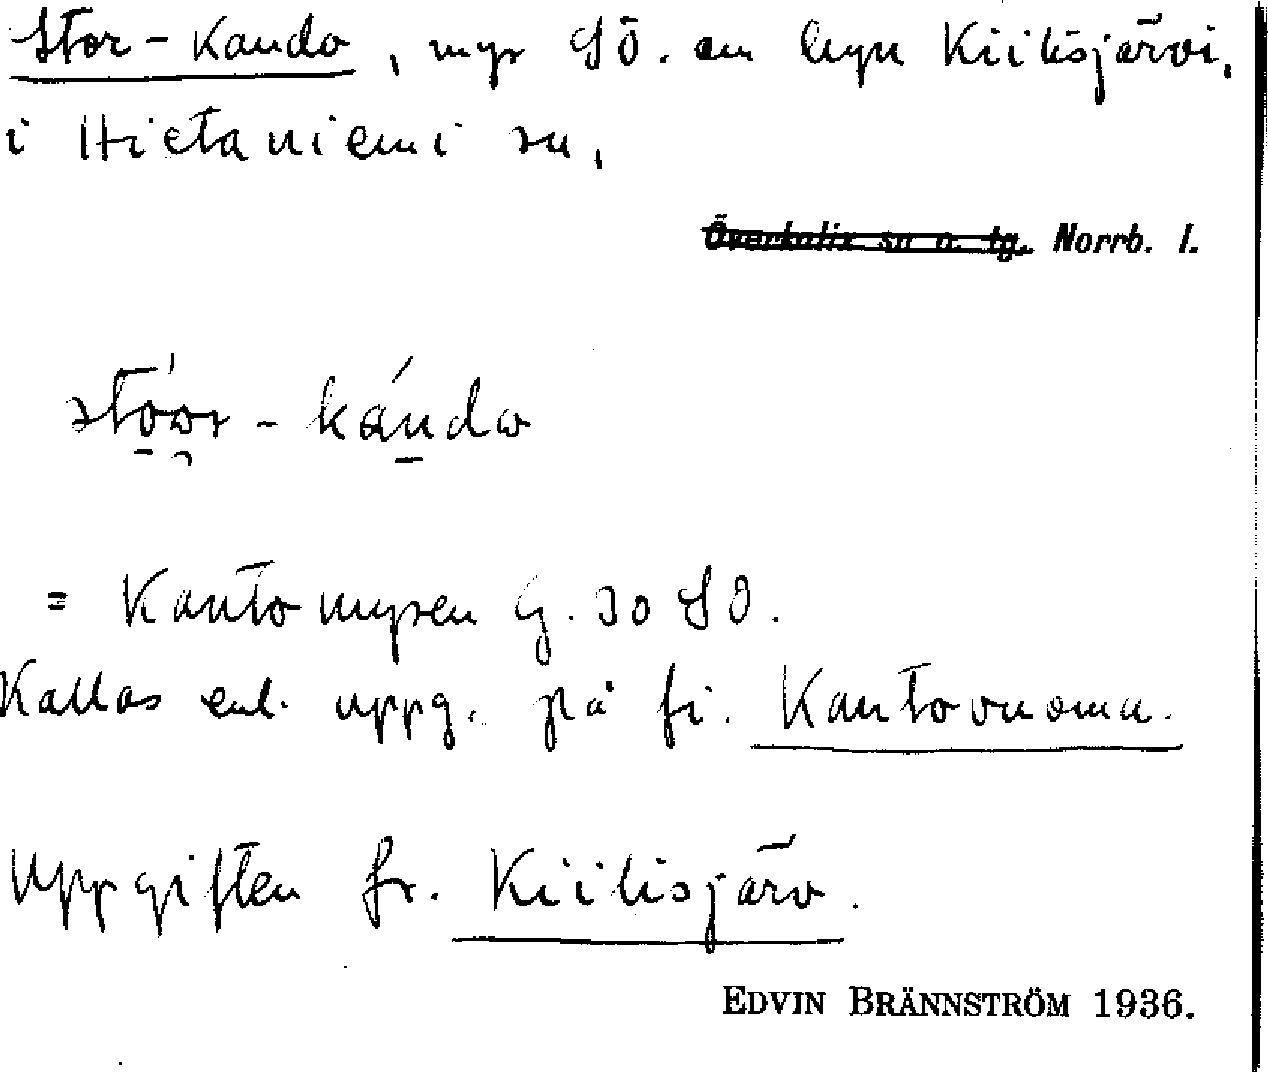 Stor-Kando, myr SÖ. om byn Kiilisjärvi,
i Hietaniemi sn,
Överkalix sn o. tg. Norrb. l.
stoor - kando
= Kantomyren G. 30 SO.
Kallas enl. uppg. på fi. Kantovuoma.
Uppgiften fr. Kiilisjärv.
EDVIN BRÄNNSTRÖM 1936.